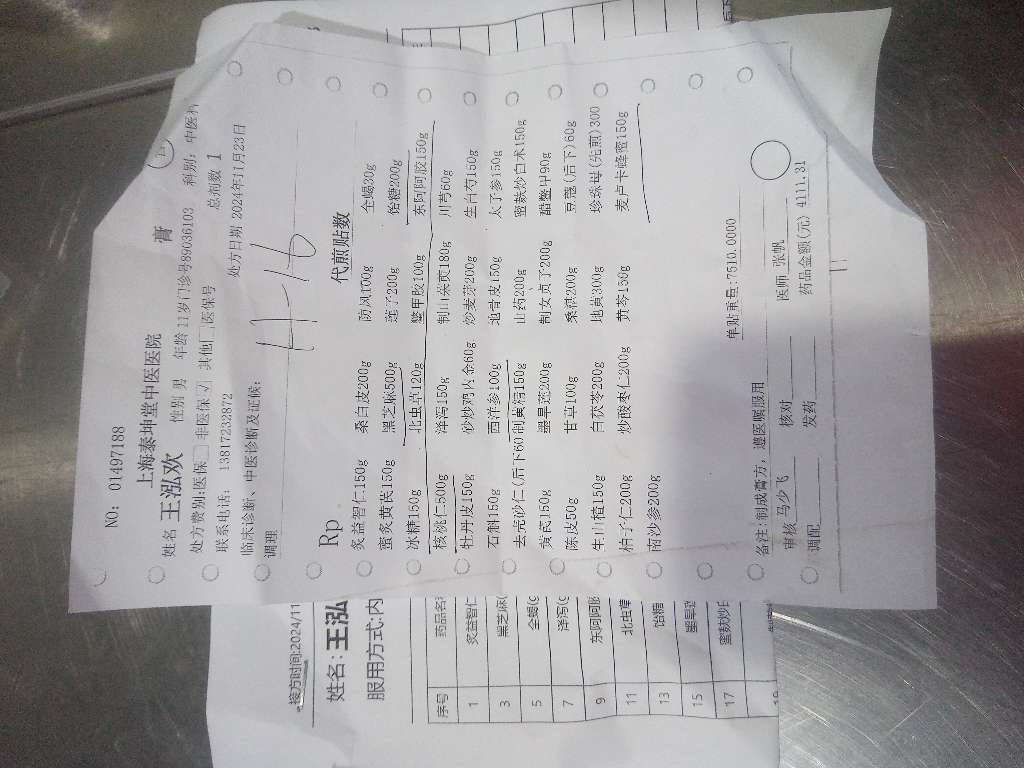 NO: 01497188
上海泰坤堂中医医院
膏
姓名 王泓欢 性别 男 年龄 11岁 门诊号89036103 科别: 中医内
处方费别:医保□ 非医保☑ 其他□ 医保号 总剂数 1
联系电话: 13817532872 处方日期 2024年11月23日
临床诊断、中医诊断及证候:
调理
11-16
Rp 代煎贴数
炙益智仁150g 桑白皮200g 防风100g 全蝎30g
蜜炙黄芪150g 黑芝麻500g 莲子200g 饴糖200g
冰糖150g 北虫草120g 鳖甲胶100g 东阿阿胶150g
核桃仁500g 泽泻150g 制山萸肉180g 川芎60g
牡丹皮150g 砂炒鸡内金60g 炒麦芽200g 生白芍150g
石斛150g 西洋参100g 地骨皮150g 太子参150g
去壳砂仁(后下60 制黄精150g 山药200g 蜜麸炒白术150g
黄芩150g 墨旱莲200g 制女贞子200g 醋鳖甲90g
陈皮50g 甘草100g 桑椹200g 豆蔻(后下)60g
生山楂150g 白茯苓200g 地黄300g 珍珠母(先煎)300
柏子仁200g 炒酸枣仁200g 麦卢卡蜂蜜150g
南沙参200g
单贴重量:7510.0000
备注:制成膏方, 遵医嘱服用
审核 马少飞 核对 医师 张帆
调配 发药 药品金额(元) 4111.31
接方时间:2024/11
姓名: 王泓
服用方式:内
序号 药品名称
1 炙益智仁
3 黑芝麻(
5 全蝎(g
7 泽泻(g
9 东阿阿胶
11 北虫草
13 饴糖
15 墨旱莲
17 蜜麸炒白